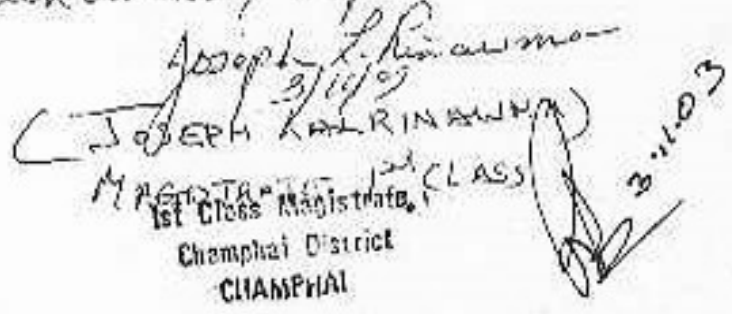 Joseph L. Rinawma
3/11/03
(JOSEPH LALRINAWMA)
MAGISTRATE 1st CLASS
1st Class Magistrate,
Champhai District
CHAMPHAI
3.11.03